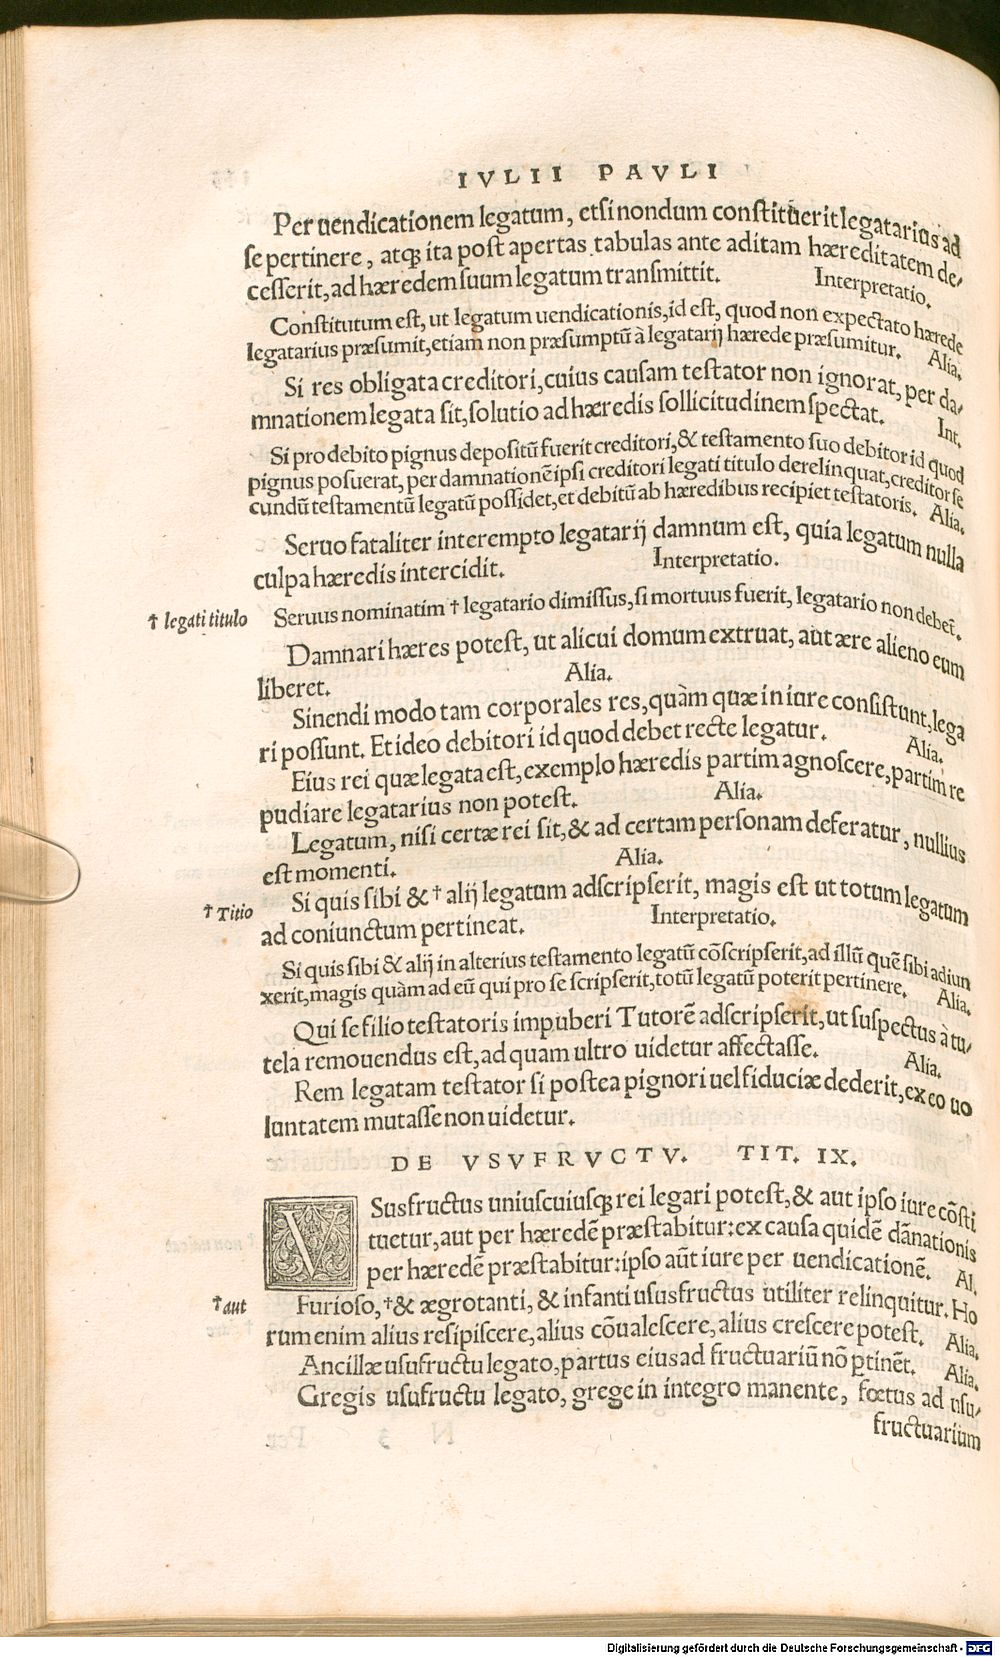 IVLII PAVLI
Per uendicationem legatum, etsi nondum constituerit legatarius ad
se pertinere, atqꝫ ita post apertas tabulas ante aditam hæreditatem de-
cesserit, ad hæredem suum legatum transmittit. Interpretatio.
Constitutum est, ut legatum uendicationis, id est, quod non expectato hærede
legatarius præsumit, etiam non præsumptū à legatarij hærede præsumitur. Alia.
Si res obligata creditori, cuius causam testator non ignorat, per da-
mnationem legata sit, solutio ad hæredis sollicitudinem spectat. Int.
Si pro debito pignus depositū fuerit creditori, & testamento suo debitor id quod
pignus posuerat, per damnationē ipsi creditori legati titulo derelinquat, creditor se
cundū testamentū legatū possidet, et debitū ab hæredibus recipiet testatoris. Alia.
Seruo fataliter interempto legatarij damnum est, quia legatum nulla
culpa hæredis intercidit. Interpretatio.
† legati titulo Seruus nominatim † legatario dimissus, si mortuus fuerit, legatario non debet̄.
Damnari hæres potest, ut alicui domum extruat, aut ære alieno eum
liberet. Alia.
Sinendi modo tam corporales res, quàm quæ in iure consistunt, lega
ri possunt. Et ideo debitori id quod debet recte legatur. Alia.
Eius rei quæ legata est, exemplo hæredis partim agnoscere, partim re
pudiare legatarius non potest. Alia.
Legatum, nisi certæ rei sit, & ad certam personam deferatur, nullius
est momenti. Alia.
† Titio Si quis sibi & † alij legatum adscripserit, magis est ut totum legatum
ad coniunctum pertineat. Interpretatio.
Si quis sibi & alij in alterius testamento legatū cōscripserit, ad illū quē sibi adiun
xerit, magis quàm ad eū qui pro se scripserit, totū legatū poterit pertinere. Alia.
Qui se filio testatoris impuberi Tutorē adscripserit, ut suspectus à tu-
tela remouendus est, ad quam ultro uidetur affectasse. Alia.
Rem legatam testator si postea pignori uel fiduciæ dederit, ex eo uo
luntatem mutasse non uidetur.
DE VSVFRVCTV. TIT. IX.
VSusfructus uniuscuiusqꝫ rei legari potest, & aut ipso iure cōsti
tuetur, aut per hæredē præstabitur: ex causa quidē dānationis
per hæredē præstabitur: ipso aūt iure per uendicationē. Al.
† aut Furioso, † & ægrotanti, & infanti ususfructus utiliter relinquitur. Ho
rum enim alius resipiscere, alius cōualescere, alius crescere potest. Alia.
Ancillæ usufructu legato, partus eius ad fructuariū nō ꝑtinēt. Alia.
Gregis usufructu legato, grege in integro manente, fœtus ad usu-
fructuarium
Digitalisierung gefördert durch die Deutsche Forschungsgemeinschaft - DFG